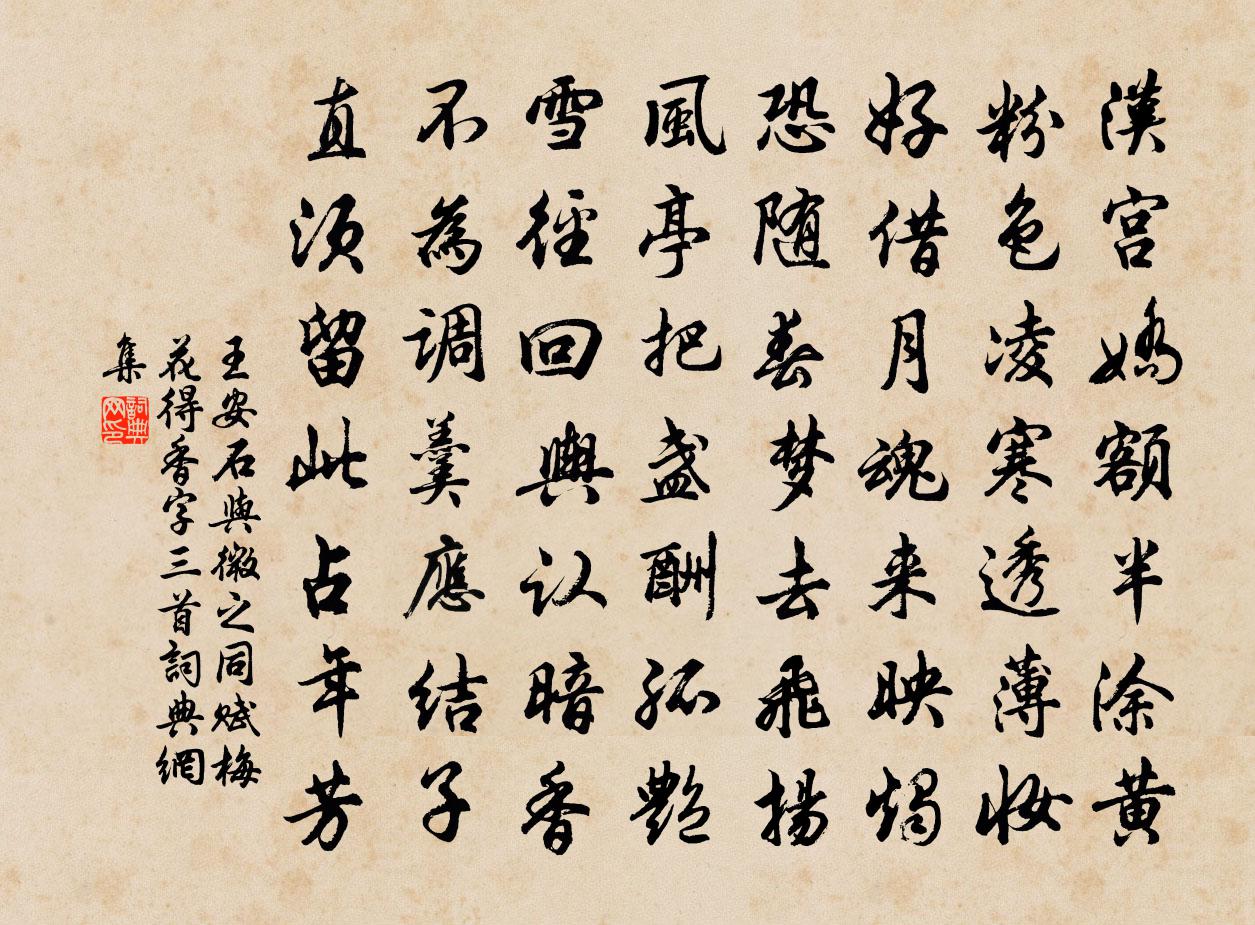 漢宫嬌額半涂黄
粉色凌寒透薄妝
好借月魂来映燭
恐随春梦去飛揚
風亭把盏酬孤艷
雪徑回輿认暗香
不為調羹應結子
直須留此占年芳
王安石與微之同赋梅
花得香字三首詞典網
集
詞典网印